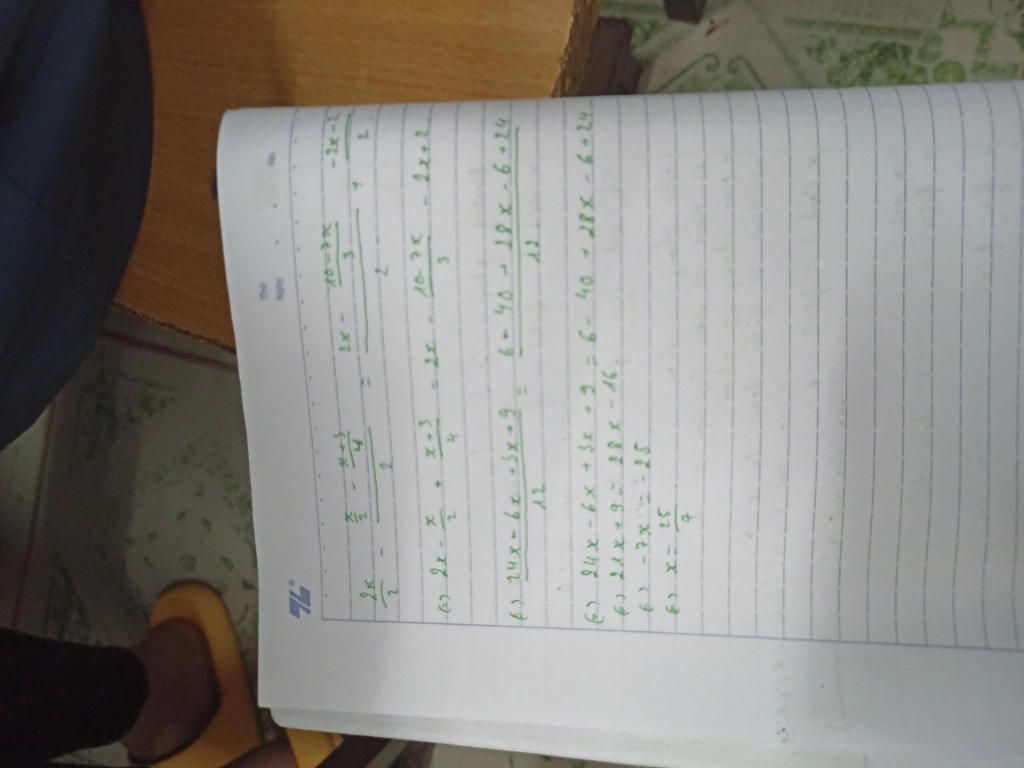 Thứ
Ngày No.
2x/2 - (x/2 - (x+3)/4)/2 = (2x - (10-7x)/3)/2 + (-2x-2)/2
(=) 2x - x/2 + (x+3)/4 = 2x - (10-7x)/3 - 2x+2
(=) (24x - 6x + 3x + 9)/12 = (6 - 40 + 28x - 6 + 24)/12
(=) 24x - 6x + 3x + 9 = 6 - 40 + 28x - 6 + 24
(=) 21x + 9 = 28x - 16
(=) -7x = -25
(=) x = 25/7